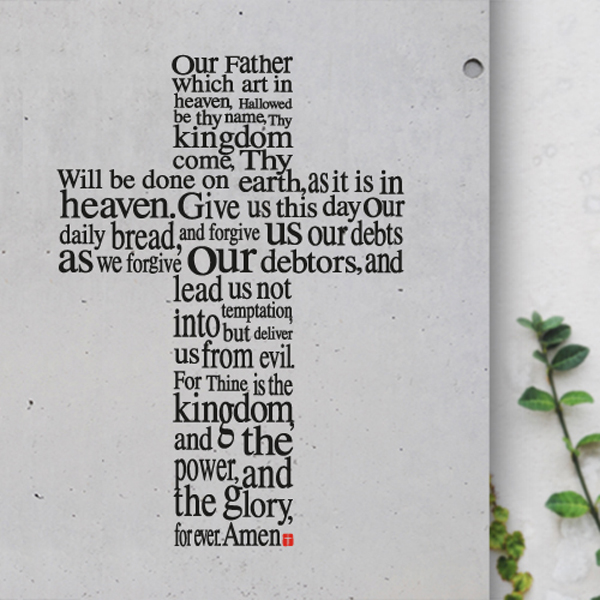 Our Father
Which art in
heaven, Hallowed
be thy name, Thy
kingdom
come, Thy
Will be done on earth, as it is in
heaven. Give us this day Our
daily bread, and forgive us our debts
as we forgive Our debtors, and
lead us not
into temptation,
but deliver
us from evil.
For Thine is the
kingdom,
and the
power, and
the glory,
for ever. Amen